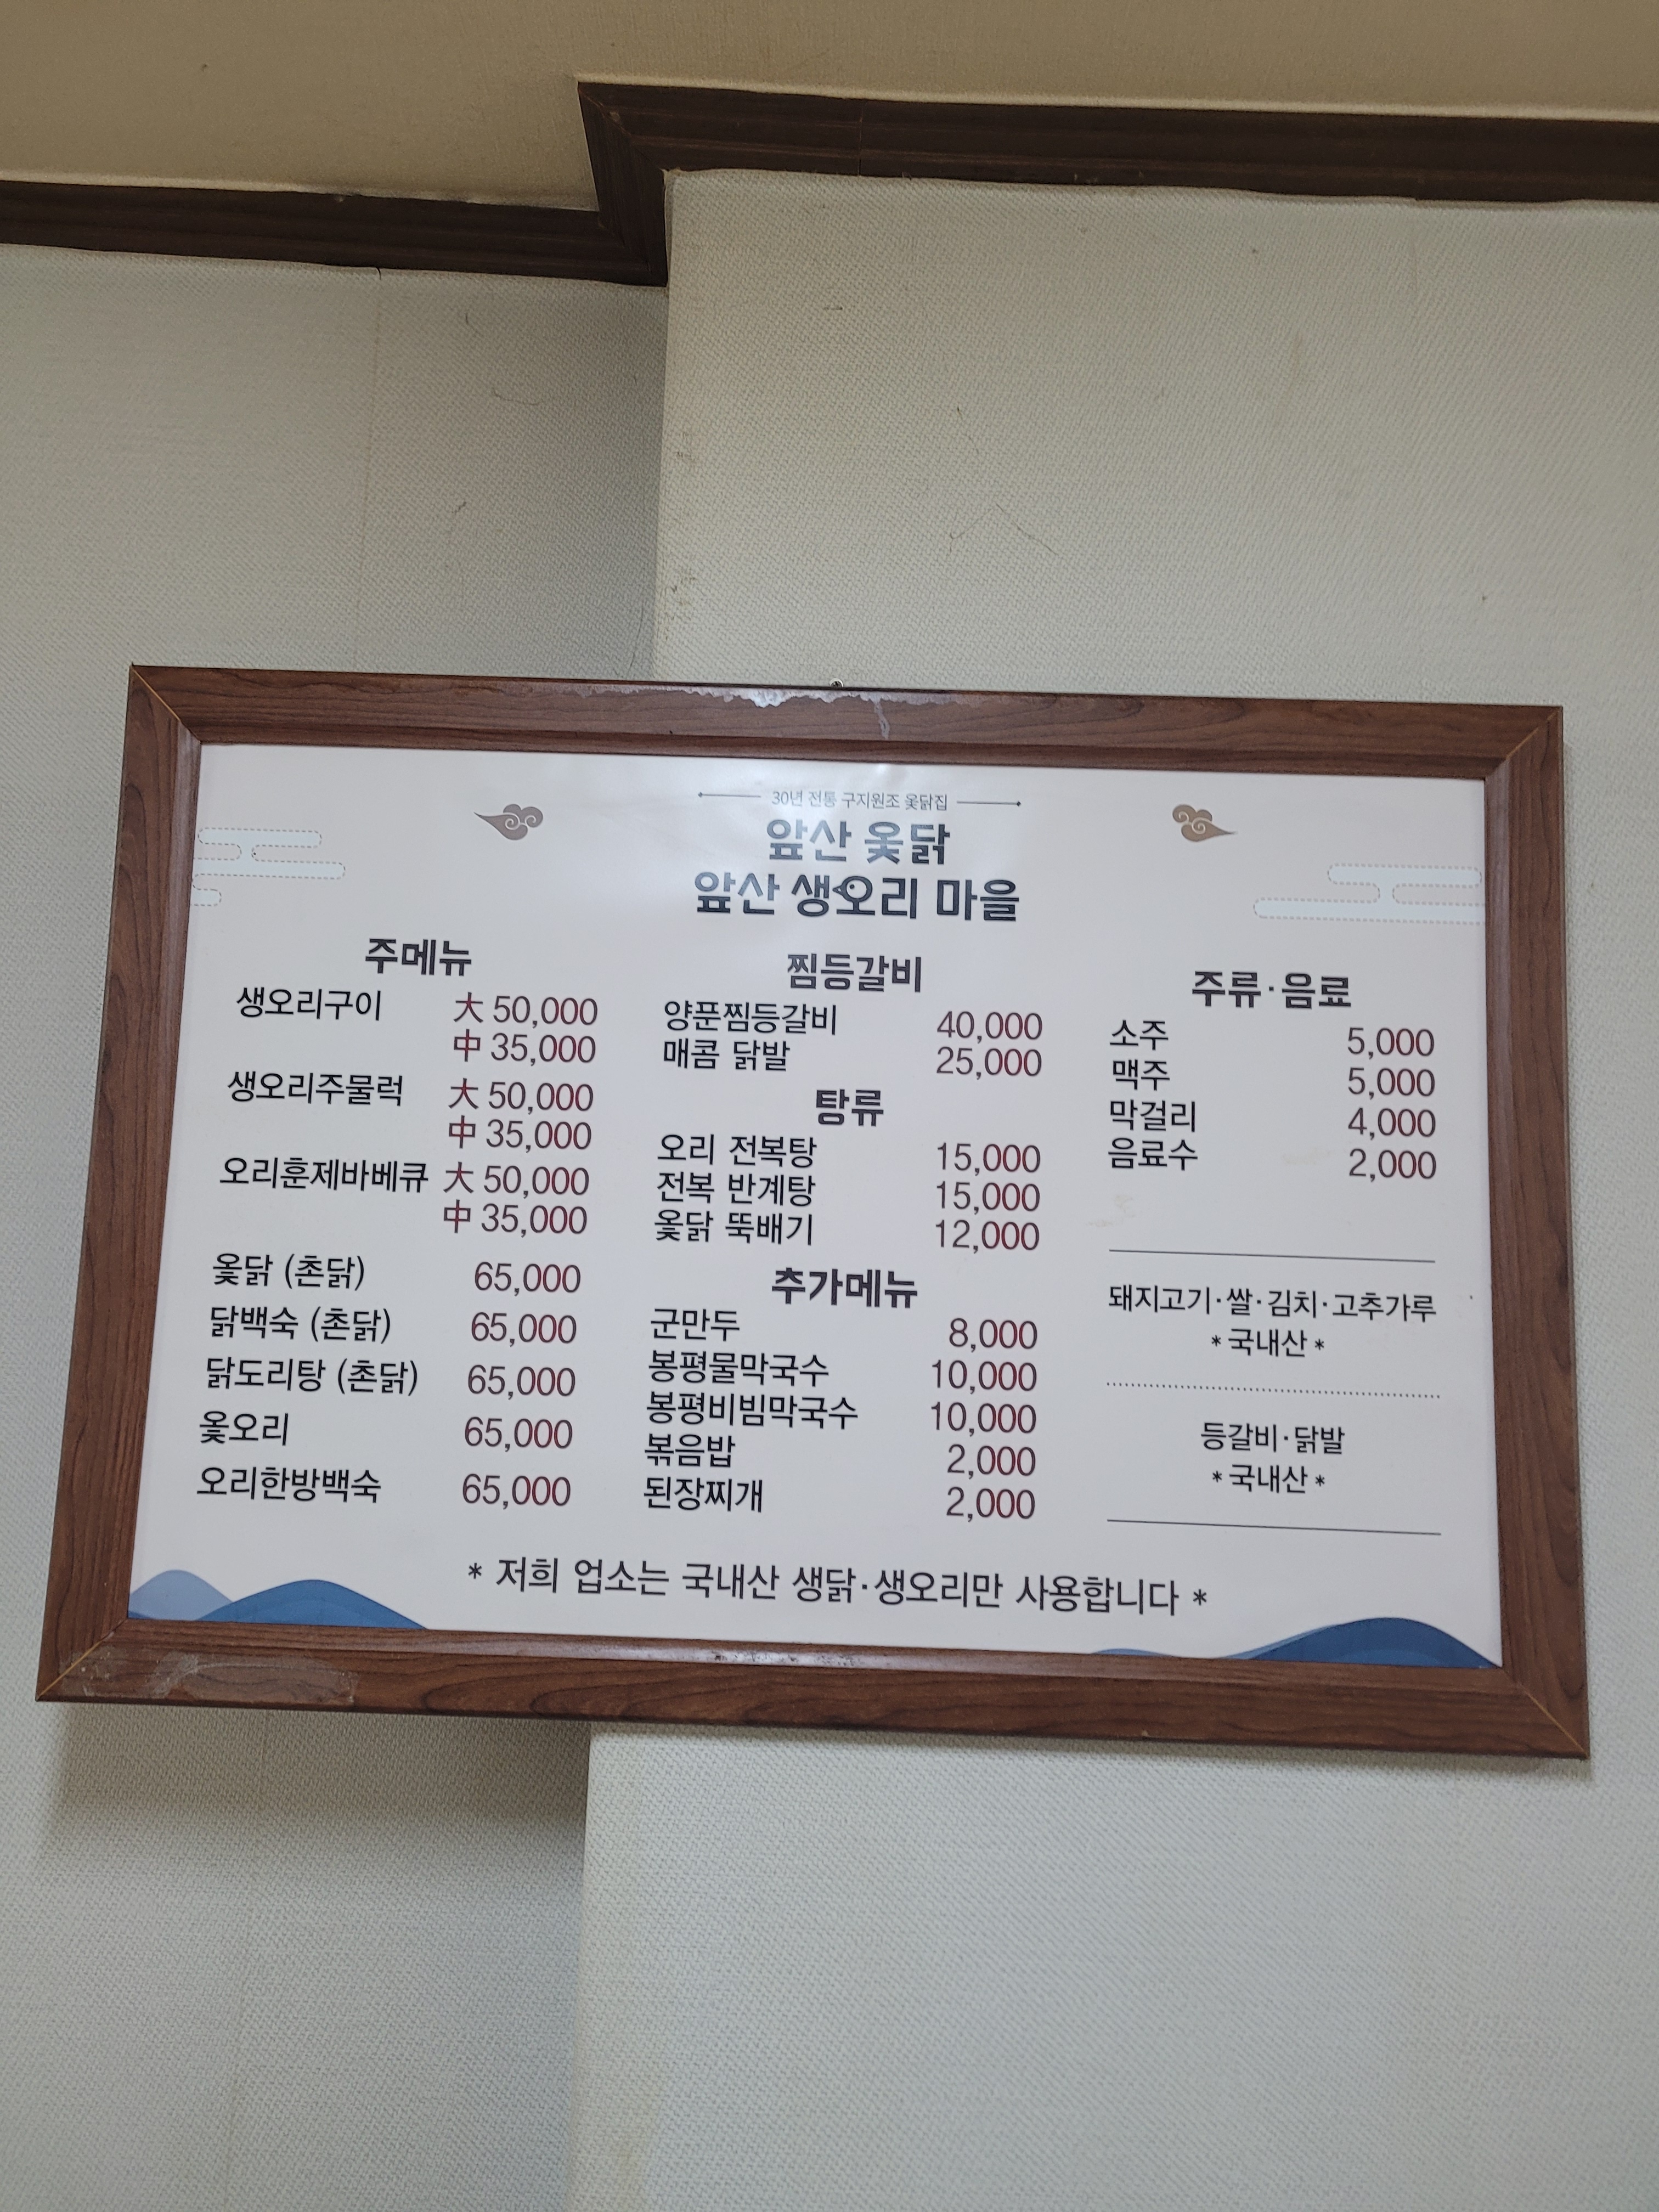 30년 전통 구지원조 옻닭집
앞산 옻닭
앞산 생오리 마을
주메뉴
생오리구이 大 50,000
中 35,000
생오리주물럭 大 50,000
中 35,000
오리훈제바베큐 大 50,000
中 35,000
옻닭 (촌닭) 65,000
닭백숙 (촌닭) 65,000
닭도리탕 (촌닭) 65,000
옻오리 65,000
오리한방백숙 65,000
찜등갈비
양푼찜등갈비 40,000
매콤 닭발 25,000
탕류
오리 전복탕 15,000
전복 반계탕 15,000
옻닭 뚝배기 12,000
추가메뉴
군만두 8,000
봉평물막국수 10,000
봉평비빔막국수 10,000
볶음밥 2,000
된장찌개 2,000
주류·음료
소주 5,000
맥주 5,000
막걸리 4,000
음료수 2,000
돼지고기·쌀·김치·고추가루
* 국내산 *
등갈비·닭발
* 국내산 *
* 저희 업소는 국내산 생닭·생오리만 사용합니다 *